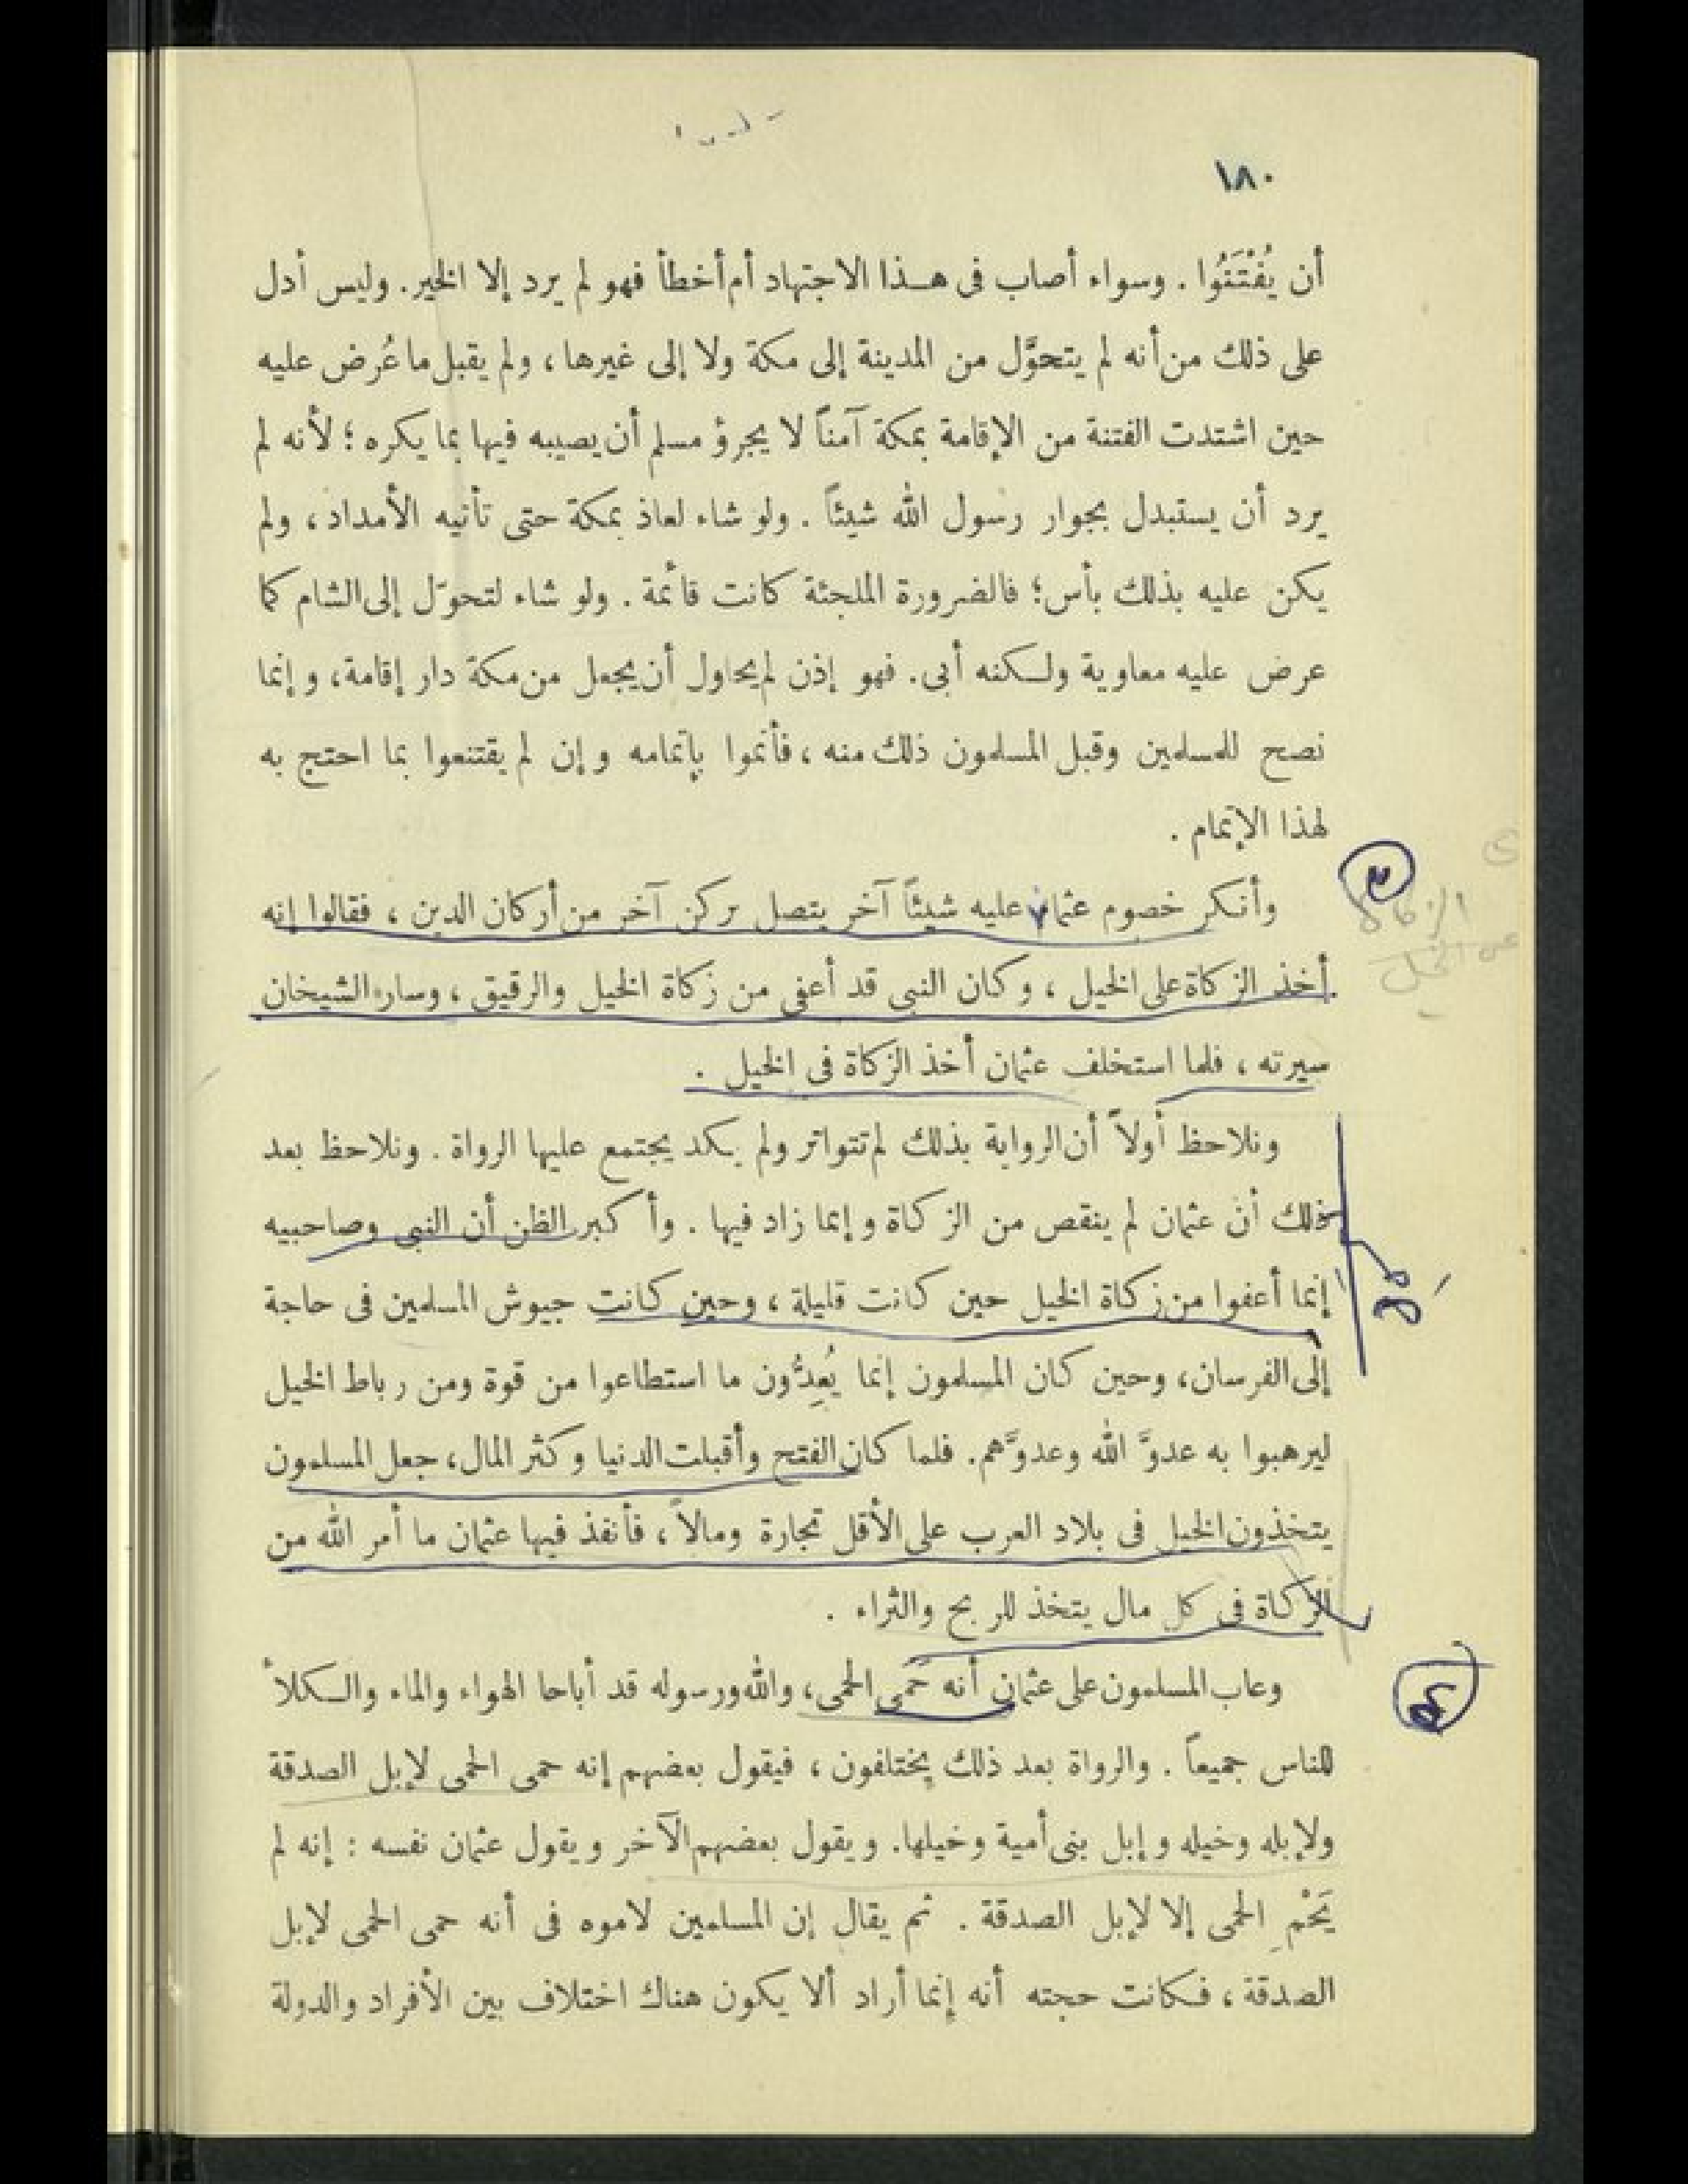 ١٨٠
أن يُفْتَنُوا . وسواء أصاب فى هـذا الاجتهاد أم أخطأ فهو لم يرد إلا الخير . وليس أدل
على ذلك من أنه لم يتحوَّل من المدينة إلى مكة ولا إلى غيرها ، ولم يقبل ما عُرض عليه
حين اشتدت الفتنة من الإقامة بمكة آمناً لا يجرؤ مسلم أن يصيبه فيها بما يكره ؛ لأنه لم
يرد أن يستبدل بجوار رسول الله شيئاً . ولو شاء لعاذ بمكة حتى تأتيه الأمداد ، ولم
يكن عليه بذلك بأس ؛ فالضرورة الملجئة كانت قائمة . ولو شاء لتحوّل إلى الشام كما
عرض عليه معاوية ولـكنه أبى . فهو إذن لم يحاول أن يجعل من مكة دار إقامة ، وإنما
نصح للمسلمين وقبل المسلمون ذلك منه ، فأتموا بإتمامه وإن لم يقتنعوا بما احتج به
لهذا الإتمام .
وأنـكر خصوم عثمان عليه شيئاً آخر يتصل بركن آخر من أركان الدين ، فقالوا إنه
أخذ الزكاة على الخيل ، وكان النبى قد أعفى من زكاة الخيل والرقيق ، وسار الشيخان
سيرته ، فلما استخلف عثمان أخذ الزكاة فى الخيل .
الزكاة
عن الخيل
ونلاحظ أولاً أن الرواية بذلك لم تتواتر ولم يـكد يجتمع عليها الرواة . ونلاحظ بعد
ذلك أن عثمان لم ينقص من الزكاة وإنما زاد فيها . وأكبر الظن أن النبى وصاحبيه
إنما أعفوا من زكاة الخيل حين كانت قليلة ، وحين كانت جيوش المسلمين فى حاجة
إلى الفرسان ، وحين كان المسلمون إنما يُعِدُّون ما استطاعوا من قوة ومن رباط الخيل
ليرهبوا به عدوَّ الله وعدوَّهم . فلما كان الفتح وأقبلت الدنيا وكثر المال ، جعل المسلمون
يتخذون الخيل فى بلاد العرب على الأقل تجارة ومالاً ، فأنفذ فيها عثمان ما أمر الله من
الزكاة فى كل مال يتخذ للربح والثراء .
وعاب المسلمون على عثمان أنه حَمَى الحمى ، والله ورسوله قد أباحا الهواء والماء والـكلأ
للناس جميعاً . والرواة بعد ذلك يختلفون ، فيقول بعضهم إنه حمى الحمى لإبل الصدقة
ولإبله وخيله وإبل بنى أمية وخيلها . ويقول بعضهم الآخر ويقول عثمان نفسه : إنه لم
يَحْمِ الحمى إلا لإبل الصدقة . ثم يقال إن المسلمين لاموه فى أنه حمى الحمى لإبل
الصدقة ، فـكانت حجته أنه إنما أراد ألا يكون هناك اختلاف بين الأفراد والدولة